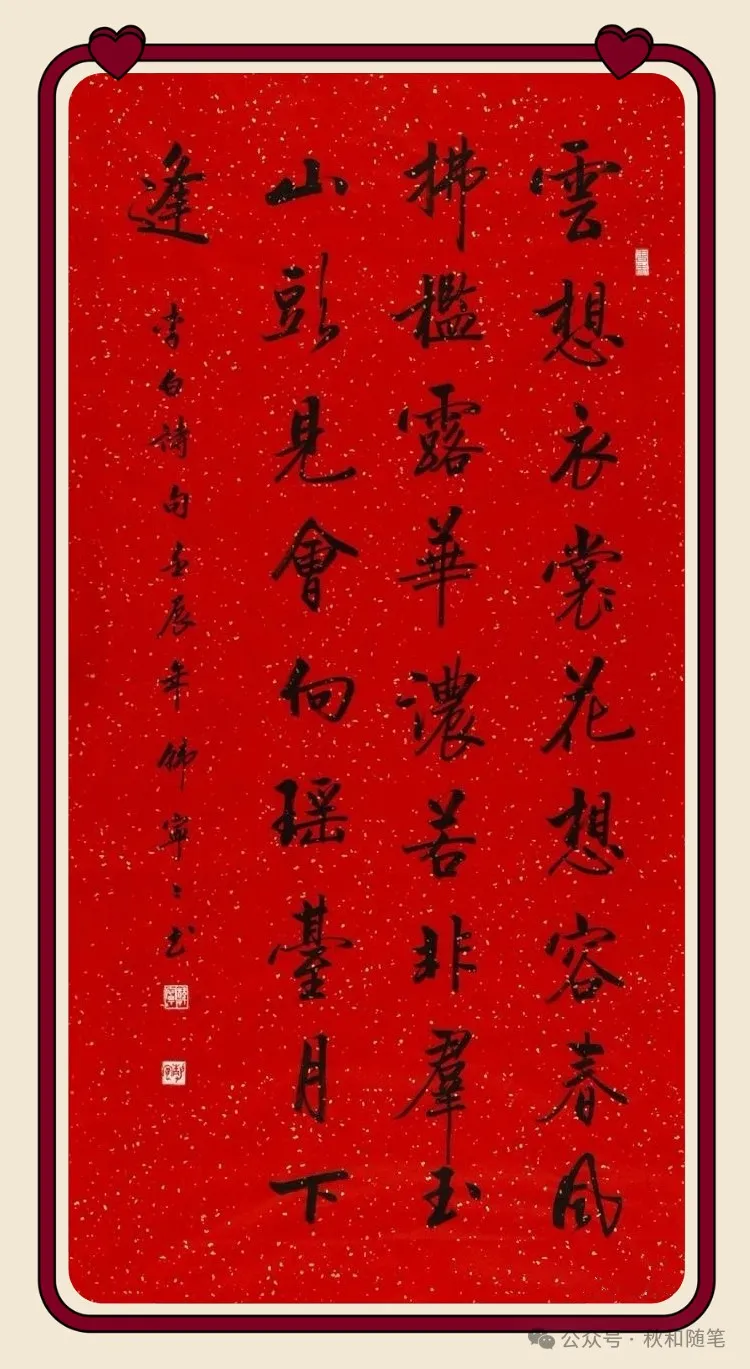 雲想衣裳花想容春風
拂檻露華濃若非羣玉
山頭見會向瑶臺月下
逢
李白詩句壬辰年韓寧寧书
公众号 · 秋和随笔